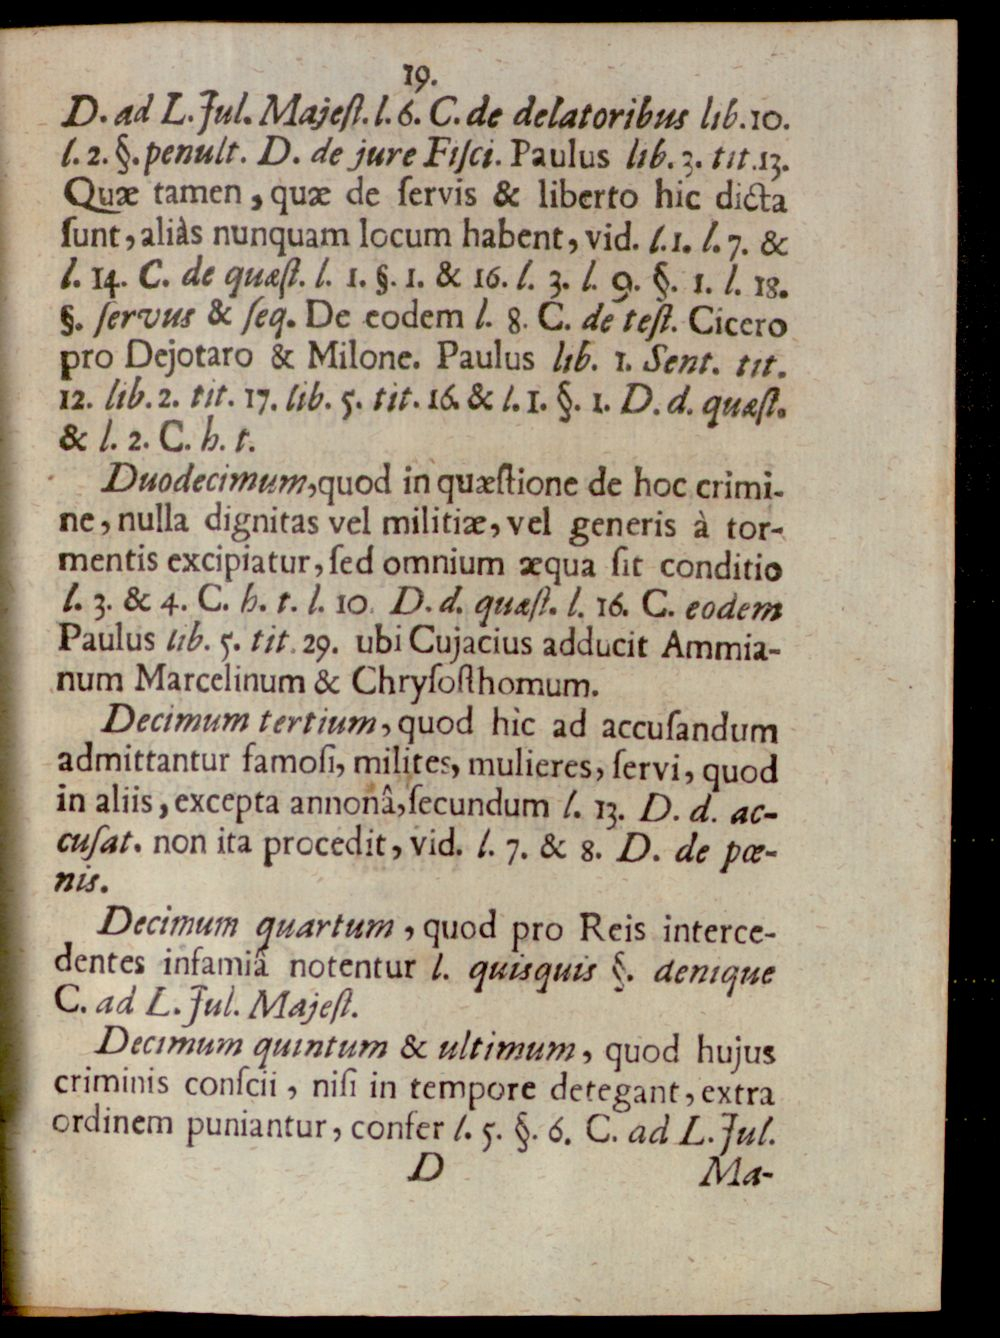 19.
D. ad L. Jul. Majeſt. l. 6. C. de delatoribus lib. 10.
l. 2. §. penult. D. de jure Fiſci. Paulus lib. 3. tit. 13.
Quæ tamen, quæ de ſervis & liberto hic dicta
ſunt, aliàs nunquam locum habent, vid. l. 1. l. 7. &
l. 14. C. de quæſt. l. 1. §. 1. & 16. l. 3. l. 9. §. 1. l. 18.
§. ſervus & ſeq. De eodem l. 8. C. de teſt. Cicero
pro Dejotaro & Milone. Paulus lib. 1. Sent. tit.
12. lib. 2. tit. 17. lib. 5. tit. 16. & l. 1. §. 1. D. d. quæſt.
& l. 2. C. h. t.
Duodecimum, quod in quæſtione de hoc crimi-
ne, nulla dignitas vel militiæ, vel generis à tor-
mentis excipiatur, ſed omnium æqua ſit conditio
l. 3. & 4. C. h. t. l. 10. D. d. quæſt. l. 16. C. eodem
Paulus lib. 5. tit. 29. ubi Cujacius adducit Ammia-
num Marcelinum & Chryſoſthomum.
Decimum tertium, quod hìc ad accuſandum
admittantur famoſi, milites, mulieres, ſervi, quod
in aliis, excepta annonâ, ſecundum l. 13. D. d. ac-
cuſat. non ita procedit, vid. l. 7. & 8. D. de pœ-
nis.
Decimum quartum, quod pro Reis interce-
dentes infamiâ notentur l. quisquis §. denique
C. ad L. Jul. Majeſt.
Decimum quintum & ultimum, quod hujus
criminis conſcii, niſi in tempore detegant, extra
ordinem puniantur, confer l. 5. §. 6. C. ad L. Jul.
D Ma-